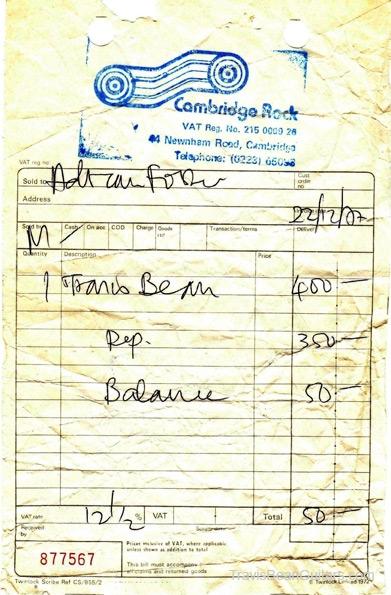 Cambridge Rock
VAT Reg. No. 215 0009 26
44 Newnham Road, Cambridge
Telephone: (0223) 65098
VAT reg no
Sold to
Cust order no
Address
22/12/77
Sold by M / Cash On acc COD Charge Goods ret Transaction/terms Deliver
Quantity Description Price
1 Travis Bean 400 —
Dep. 350 —
Balance 50 —
VAT rate 12½ % VAT Total 50 —
Received by
877567
Prices inclusive of VAT, where applicable, unless shown as addition to total
This bill must accompany all claims and returned goods
Twinlock Scribe Ref CS/855/2 © Twinlock Limited 1972
TravisBeanGuitars.com